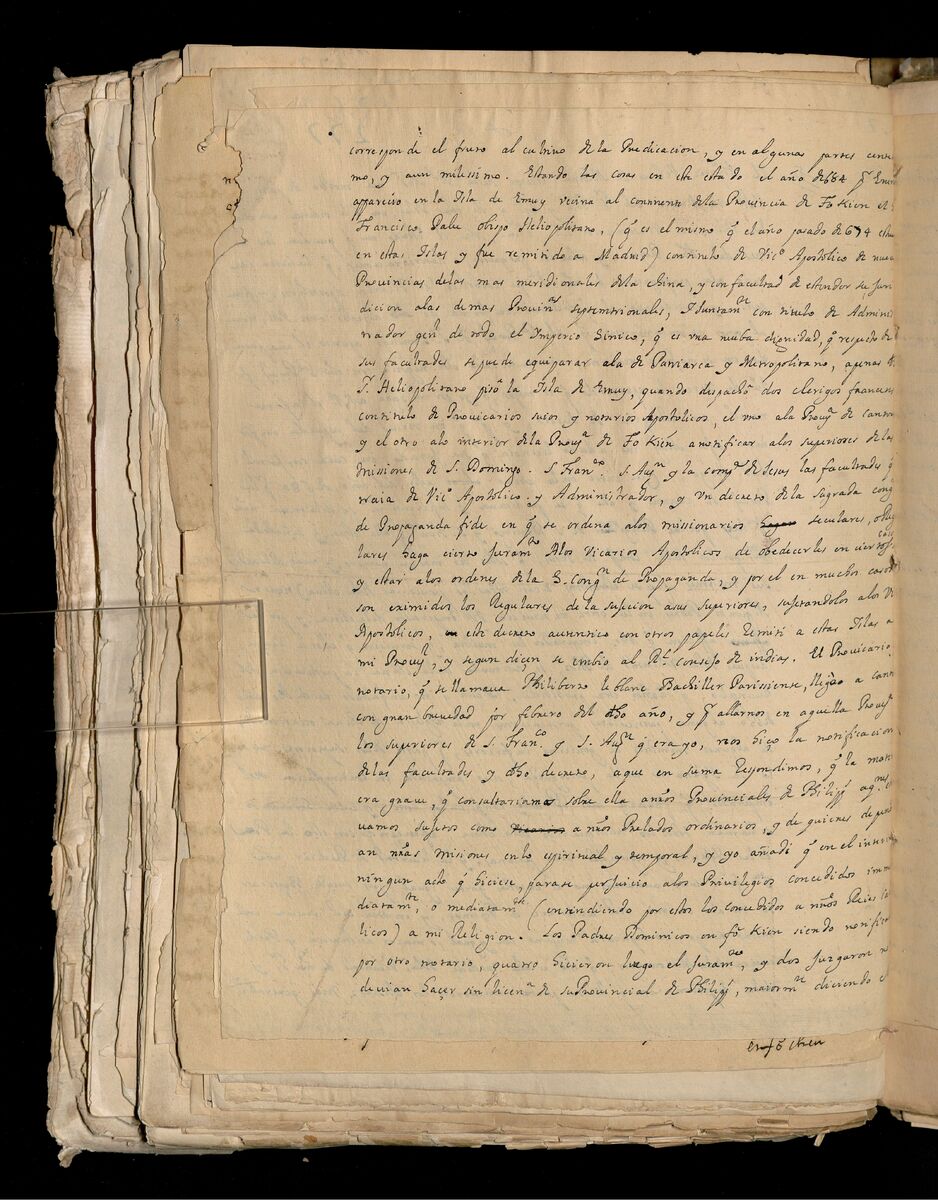 corresponde el fruto al cultivo de la Predicacion, y en algunas partes cente
mo, y aun milessimo. Estando las cosas en este estado el año de 684 pr Enero
apparecio en la Isla de Emuy vecina al continente dela Provincia de Fo Kien el
Francisco Palu obispo Heliopolitano, (q es el mismo q el año pasado de 674 estu
en estas Islas y fue remitido a Madrid) con titulo de Vico Apostolico de nueve
Provincias delas mas meridionales dela china, y con facultad de estender su juri
dicion alas demas Provinas septemtrionales, Y Juntamte con titulo de Adminis
trador genl de todo el Imperio Sinico, q es vna nueba dignidad, q respeto de
sus facultades se puede equiparar ala de Patriarca y Metropolitano, apenas
Heliopolitano pisò la Isla de Emuy, quando despachò dos clerigos franceses
con titulo de Provicarios suios y notarios Apostolicos, el vno ala Provya de canton
y el otro alo interior dela Provya de Fo Kien anotificar alos superiores de las
missiones de S. Domingo. S. Franco. S. Augn y la compa de Jesus las facultades q
traia de Vico Apostolico. y Administrador, y vn decreto de la sagrada congn
de Propaganda fide en q se ordena alos missionarios seculares, o Regu
lares haga cierto Juramto Alos Vicarios Apostolicos de obedecerles en ciertos casos
y estar alos ordenes dela S. Congn de Propaganda, y por el en muchos casos
son eximidos los Regulares de la sujecion asus superiores, sujetandolos alos Vi
Apostolicos, este decreto autentico con otros papeles Remiti a estas Islas a
mi Provyl, y segun diçen se embio al Rl consejo de indias. El Provicario
notario, q se llamaua Philiberto leblanc Bachiller Parissiense, llego a canton
con gran brevedad por febrero del dho año, y pr allarnos en aquella Provya
los superiores de S. Franco y S. Augn q era yo, nos hiço la notificacion
delas facultades y dho decreto, aque en suma Respondimos, q la materia
era graue, q consultariamos sobre ella anros Provinciales de Philipps aqnes
uamos sujetos como a nros Prelados ordinarios, y de quienes depend
an nras misiones en lo espiritual y temporal, y yo añadi q en el interin
ningun acto q hiciese, parase perjuicio alos Privilegios concedidos imme
diatamte, o mediatamte (entendiendo por estos los concedidos a nros Reies Cato
licos) a mi Religion. Los Padres Dominicos en fo Kien siendo notificados
por otro notario, quatro hicieron luego el Juramto, y dos juzgaron no
deuian haçer sin licena de su Provincial de Philipps, maiormte diciendo el
en fo Kien